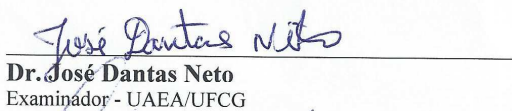 José Dantas Neto
Dr. José Dantas Neto
Examinador - UAEA/UFCG